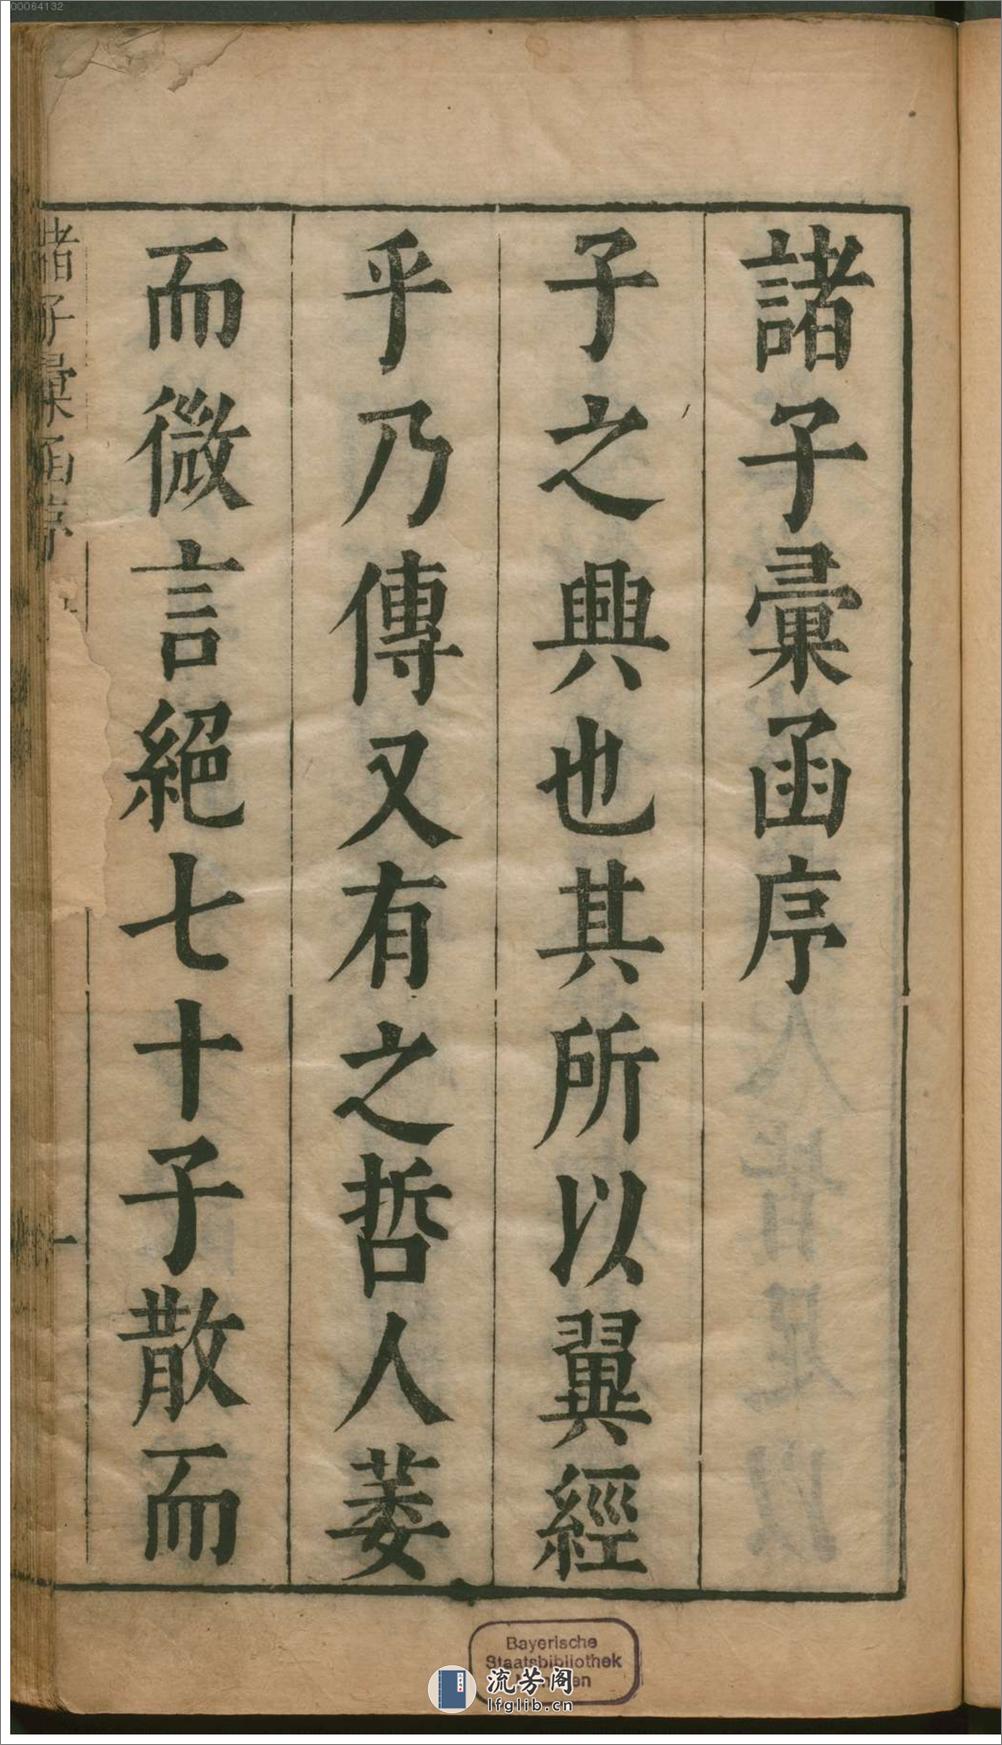 00064132
諸子彙函序
子之興也其所以翼經
乎乃傳又有之哲人萎
而微言絕七十子散而
諸子彙函序
一
Bayerische
Staatsbibliothek
流芳阁
lfglib.cn